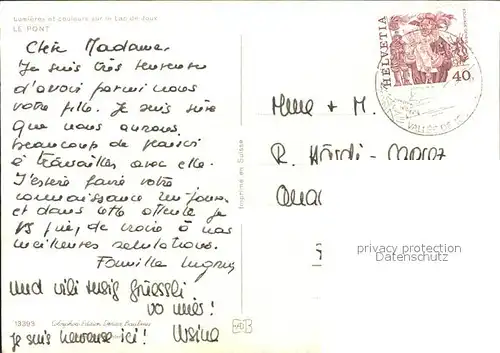 Lumières et couleurs sur le Lac de Joux
LE PONT
Chère Madame,
Je suis très heureuse
d'avoir parmi nous
votre fille. Je suis sûre
que nous aurons
beaucoup de plaisir
à travailler avec elle.
J'espère faire votre
connaissance un jour
et dans cette attente je
vs prie, de croire à nos
meilleures salutations.
Famille
Und vili liebi Grüessli
vo mir!
je suis heureuse ici! Ursina
13393
Imprimé en Suisse
HELVETIA
40
VALLÉE DE
Mme + M.
R. Hürdi - Moroz
privacy protection
Datenschutz